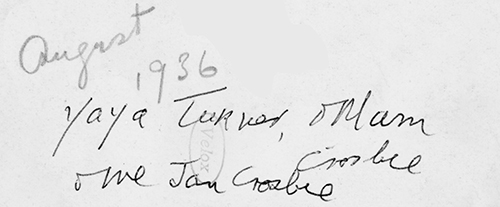 August
1936
Yaya Turner, & Mum
Crosbie
& me Jan Crosbie
Velox